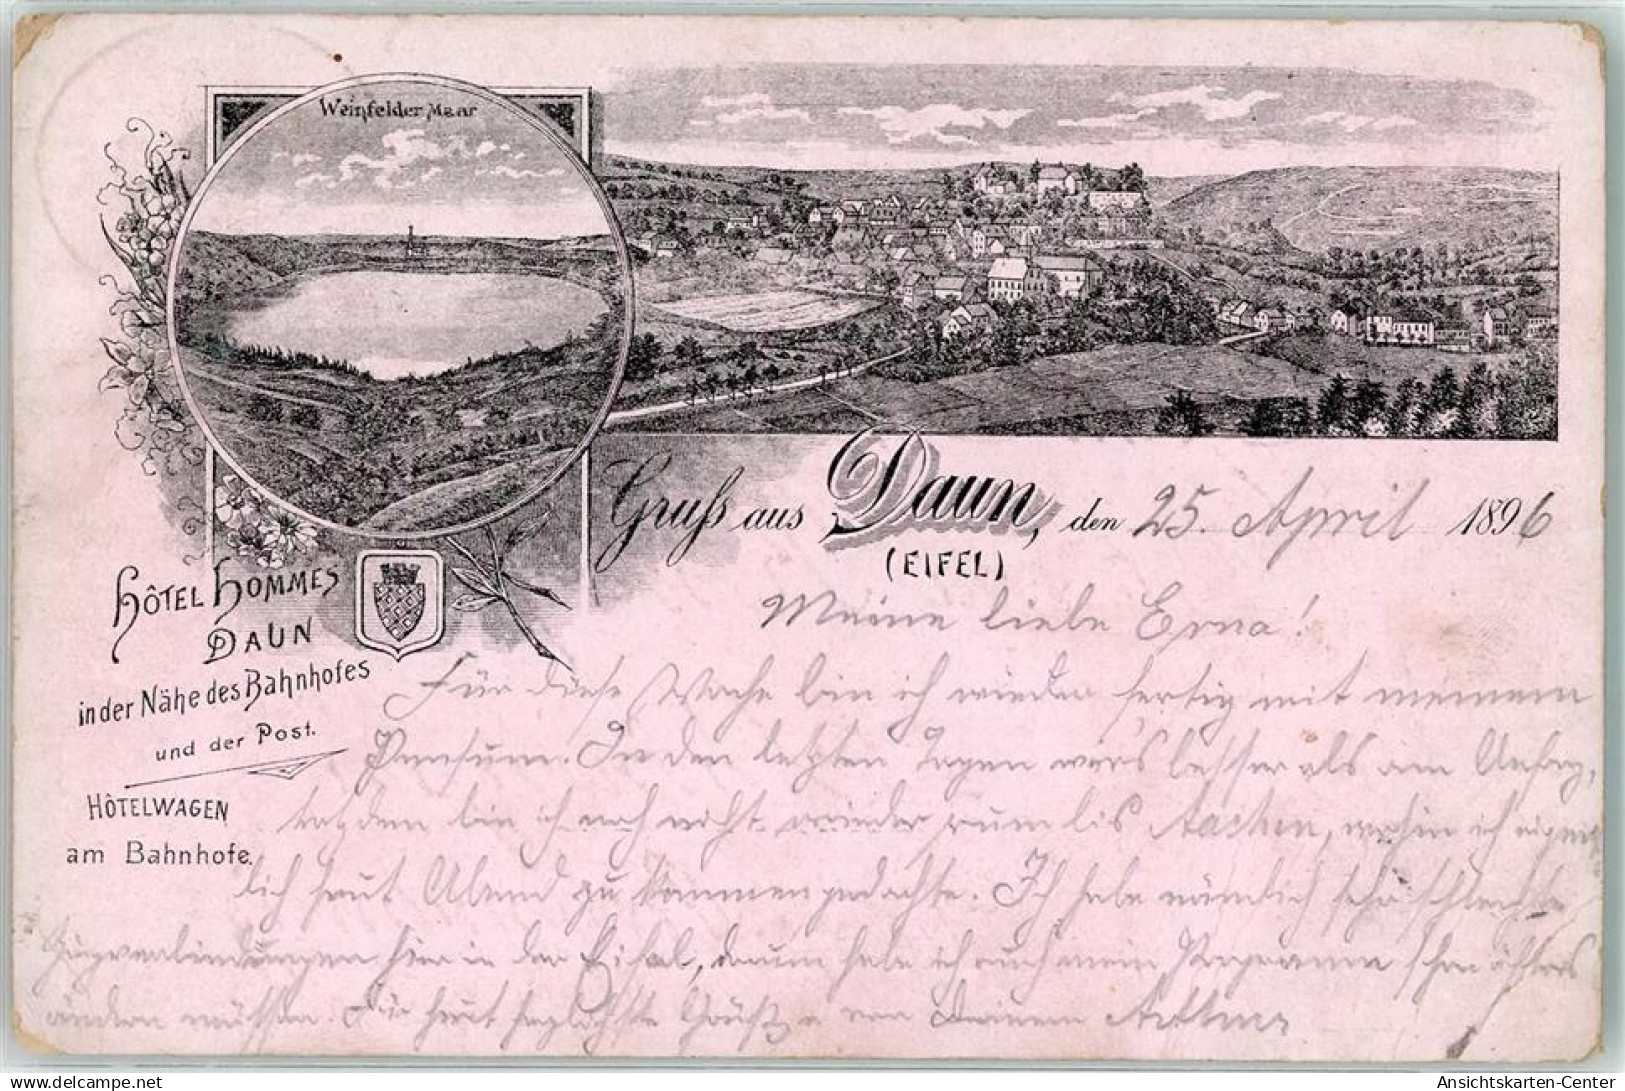 Weinfelder Maar
Gruß aus Daun, den 25. April 1896
(EIFEL)
HÔTEL HOMMES
DAUN
in der Nähe des Bahnhofes
und der Post.
HÔTELWAGEN
am Bahnhofe.
Meine liebe Erna!
Für diese Woche bin ich wieder fertig mit meinem
Pensum. In den letzten Tagen wars besser als am Anfang,
trotzdem bin ich noch nicht wieder rum bis Aachen, wohin ich eigent
lich heut Abend zu kommen gedachte. Ich habe nämlich sehr schlechte
Zugverbindungen hier in der Eifel, darum habe ich auch mein Programm schon öfters
ändern müssen. Für heut herzlichste Grüße von Deinem Arthur
www.ansichtskarten-center.de
Ansichtskarten-Center